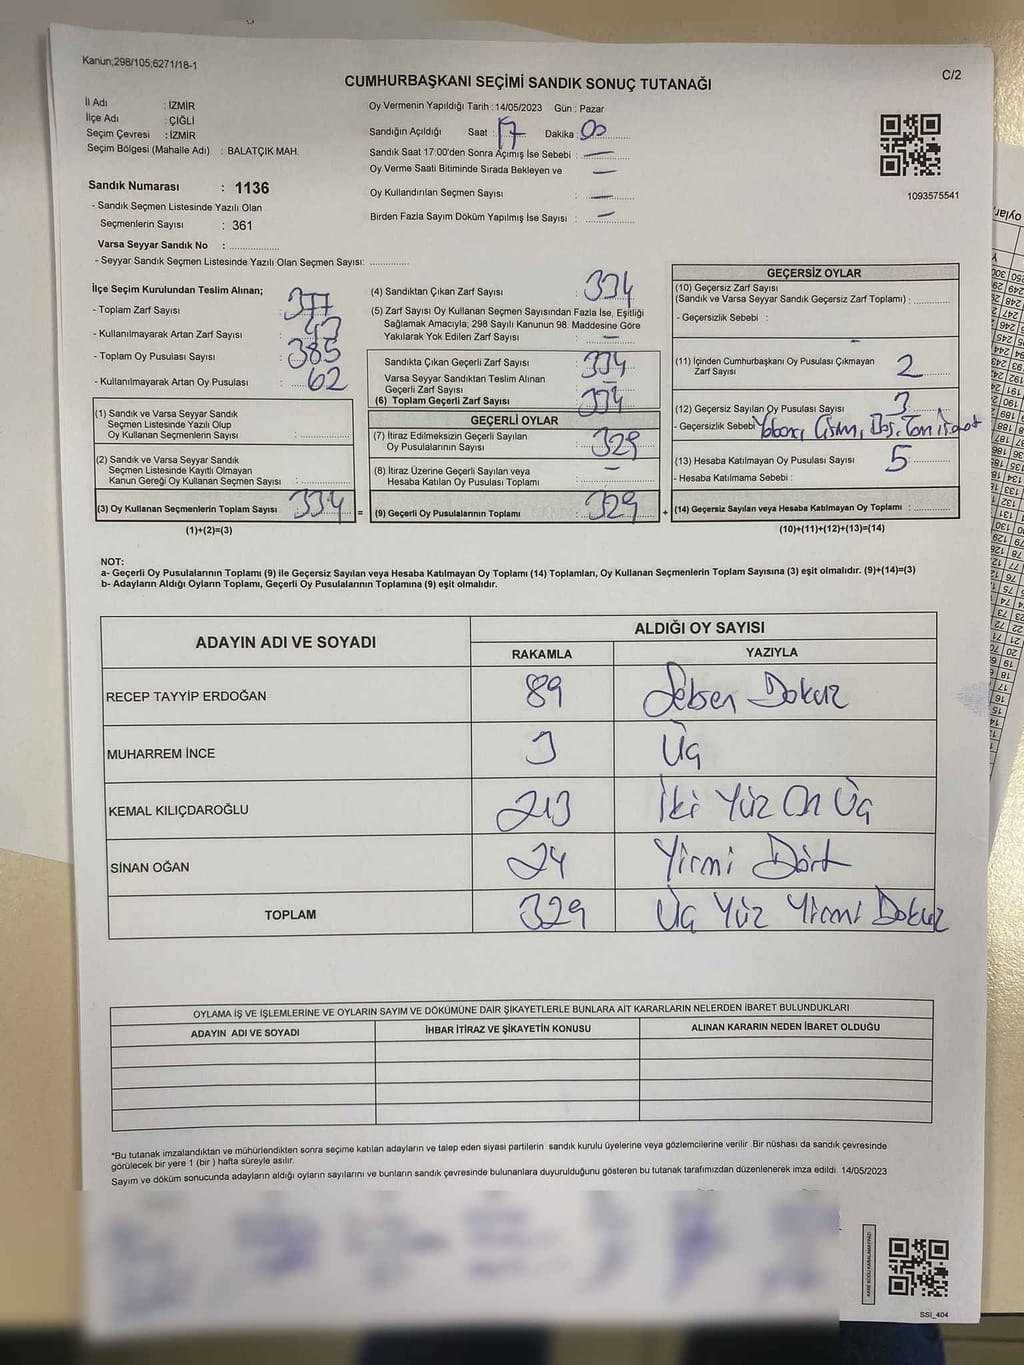 Kanun;298/105;6271/18-1
C/2
CUMHURBAŞKANI SEÇİMİ SANDIK SONUÇ TUTANAĞI
İl Adı : İZMİR
İlçe Adı : ÇİĞLİ
Seçim Çevresi : İZMİR
Seçim Bölgesi (Mahalle Adı) : BALATÇIK MAH.
Sandık Numarası : 1136
- Sandık Seçmen Listesinde Yazılı Olan
Seçmenlerin Sayısı : 361
Varsa Seyyar Sandık No : ..............
- Seyyar Sandık Seçmen Listesinde Yazılı Olan Seçmen Sayısı: ..............
Oy Vermenin Yapıldığı Tarih : 14/05/2023 Gün : Pazar
Sandığın Açıldığı Saat : 17 Dakika : 00
Sandık Saat 17:00'den Sonra Açımış İse Sebebi : —
Oy Verme Saati Bitiminde Sırada Bekleyen ve —
Oy Kullandırılan Seçmen Sayısı : —
Birden Fazla Sayım Döküm Yapılmış İse Sayısı : —
1093575541
İlçe Seçim Kurulundan Teslim Alınan;
- Toplam Zarf Sayısı : 377
- Kullanılmayarak Artan Zarf Sayısı : 43
- Toplam Oy Pusulası Sayısı : 385
- Kullanılmayarak Artan Oy Pusulası : 62
(1) Sandık ve Varsa Seyyar Sandık
Seçmen Listesinde Yazılı Olup
Oy Kullanan Seçmenlerin Sayısı : ..............
(2) Sandık ve Varsa Seyyar Sandık
Seçmen Listesinde Kayıtlı Olmayan
Kanun Gereği Oy Kullanan Seçmen Sayısı : ..............
(3) Oy Kullanan Seçmenlerin Toplam Sayısı : 334 =
(1)+(2)=(3)
(4) Sandıktan Çıkan Zarf Sayısı : 334
(5) Zarf Sayısı Oy Kullanan Seçmen Sayısından Fazla İse, Eşitliği
Sağlamak Amacıyla; 298 Sayılı Kanunun 98. Maddesine Göre
Yakılarak Yok Edilen Zarf Sayısı : —
Sandıkta Çıkan Geçerli Zarf Sayısı : 334
Varsa Seyyar Sandıktan Teslim Alınan
Geçerli Zarf Sayısı :
(6) Toplam Geçerli Zarf Sayısı : 334
GEÇERLİ OYLAR
(7) İtiraz Edilmeksizin Geçerli Sayılan
Oy Pusulalarının Sayısı : 329
(8) İtiraz Üzerine Geçerli Sayılan veya
Hesaba Katılan Oy Pusulası Toplamı : —
(9) Geçerli Oy Pusulalarının Toplamı : 329 +
GEÇERSİZ OYLAR
(10) Geçersiz Zarf Sayısı
(Sandık ve Varsa Seyyar Sandık Geçersiz Zarf Toplamı) : ..............
- Geçersizlik Sebebi :
(11) İçinden Cumhurbaşkanı Oy Pusulası Çıkmayan
Zarf Sayısı : 2
(12) Geçersiz Sayılan Oy Pusulası Sayısı : 3
- Geçersizlik Sebebi : Yabancı Cisim, Boş,
(13) Hesaba Katılmayan Oy Pusulası Sayısı : 5
- Hesaba Katılmama Sebebi :
(14) Geçersiz Sayılan veya Hesaba Katılmayan Oy Toplamı : ..............
(10)+(11)+(12)+(13)=(14)
NOT:
a- Geçerli Oy Pusulalarının Toplamı (9) ile Geçersiz Sayılan veya Hesaba Katılmayan Oy Toplamı (14) Toplamları, Oy Kullanan Seçmenlerin Toplam Sayısına (3) eşit olmalıdır. (9)+(14)=(3)
b- Adayların Aldığı Oyların Toplamı, Geçerli Oy Pusulalarının Toplamına (9) eşit olmalıdır.
ADAYIN ADI VE SOYADI ALDIĞI OY SAYISI
RAKAMLA YAZIYLA
RECEP TAYYİP ERDOĞAN 89 Seksen Dokuz
MUHARREM İNCE 3 Üç
KEMAL KILIÇDAROĞLU 213 İki Yüz On Üç
SİNAN OĞAN 24 Yirmi Dört
TOPLAM 329 Üç Yüz Yirmi Dokuz
OYLAMA İŞ VE İŞLEMLERİNE VE OYLARIN SAYIM VE DÖKÜMÜNE DAİR ŞİKAYETLERLE BUNLARA AİT KARARLARIN NELERDEN İBARET BULUNDUKLARI
ADAYIN ADI VE SOYADI İHBAR İTİRAZ VE ŞİKAYETİN KONUSU ALINAN KARARIN NEDEN İBARET OLDUĞU
*Bu tutanak imzalandıktan ve mühürlendikten sonra seçime katılan adayların ve talep eden siyasi partilerin sandık kurulu üyelerine veya gözlemcilerine verilir .Bir nüshası da sandık çevresinde
görülecek bir yere 1 (bir ) hafta süreyle asılır.
Sayım ve döküm sonucunda adayların aldığı oyların sayılarını ve bunların sandık çevresinde bulunanlara duyurulduğunu gösteren bu tutanak tarafımızdan düzenlenerek imza edildi. 14/05/2023
SSİ_404